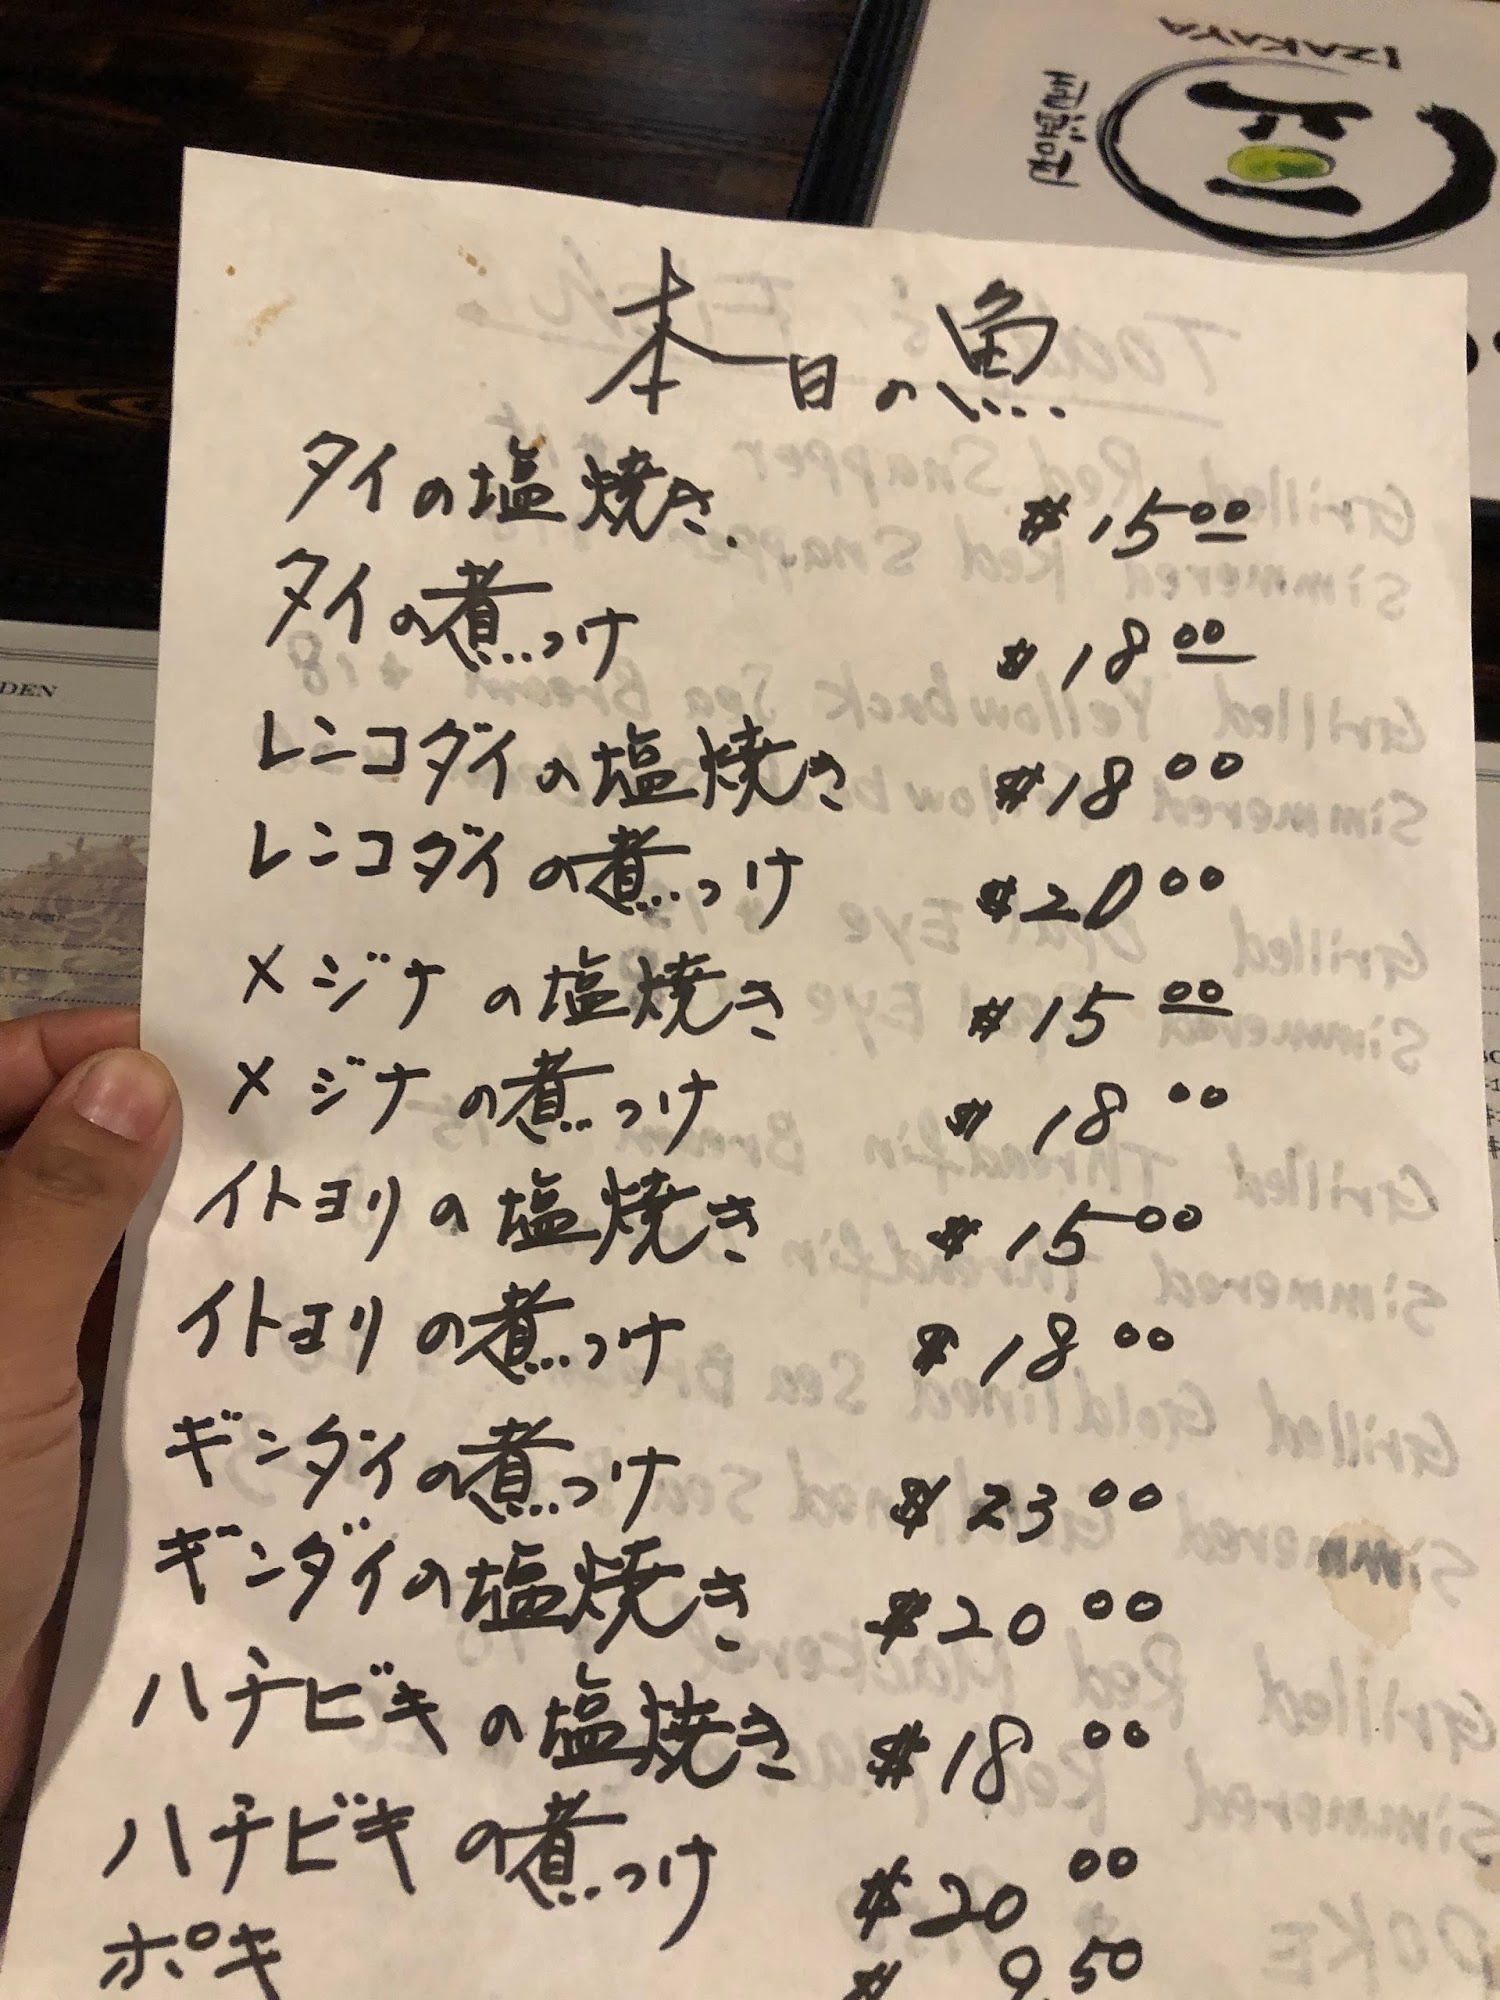 IZAKAYA
本日の魚
タイの塩焼き. $15.00
タイの煮つけ $18.00
レンコダイの塩焼き $18.00
レンコダイの煮つけ $20.00
メジナの塩焼き $15.00
メジナの煮つけ $18.00
イトヨリの塩焼き $15.00
イトヨリの煮つけ $18.00
ギンダイの煮つけ $23.00
ギンダイの塩焼き $20.00
ハチビキの塩焼き $18.00
ハチビキの煮つけ $20.00
ポキ $9.50
DEN